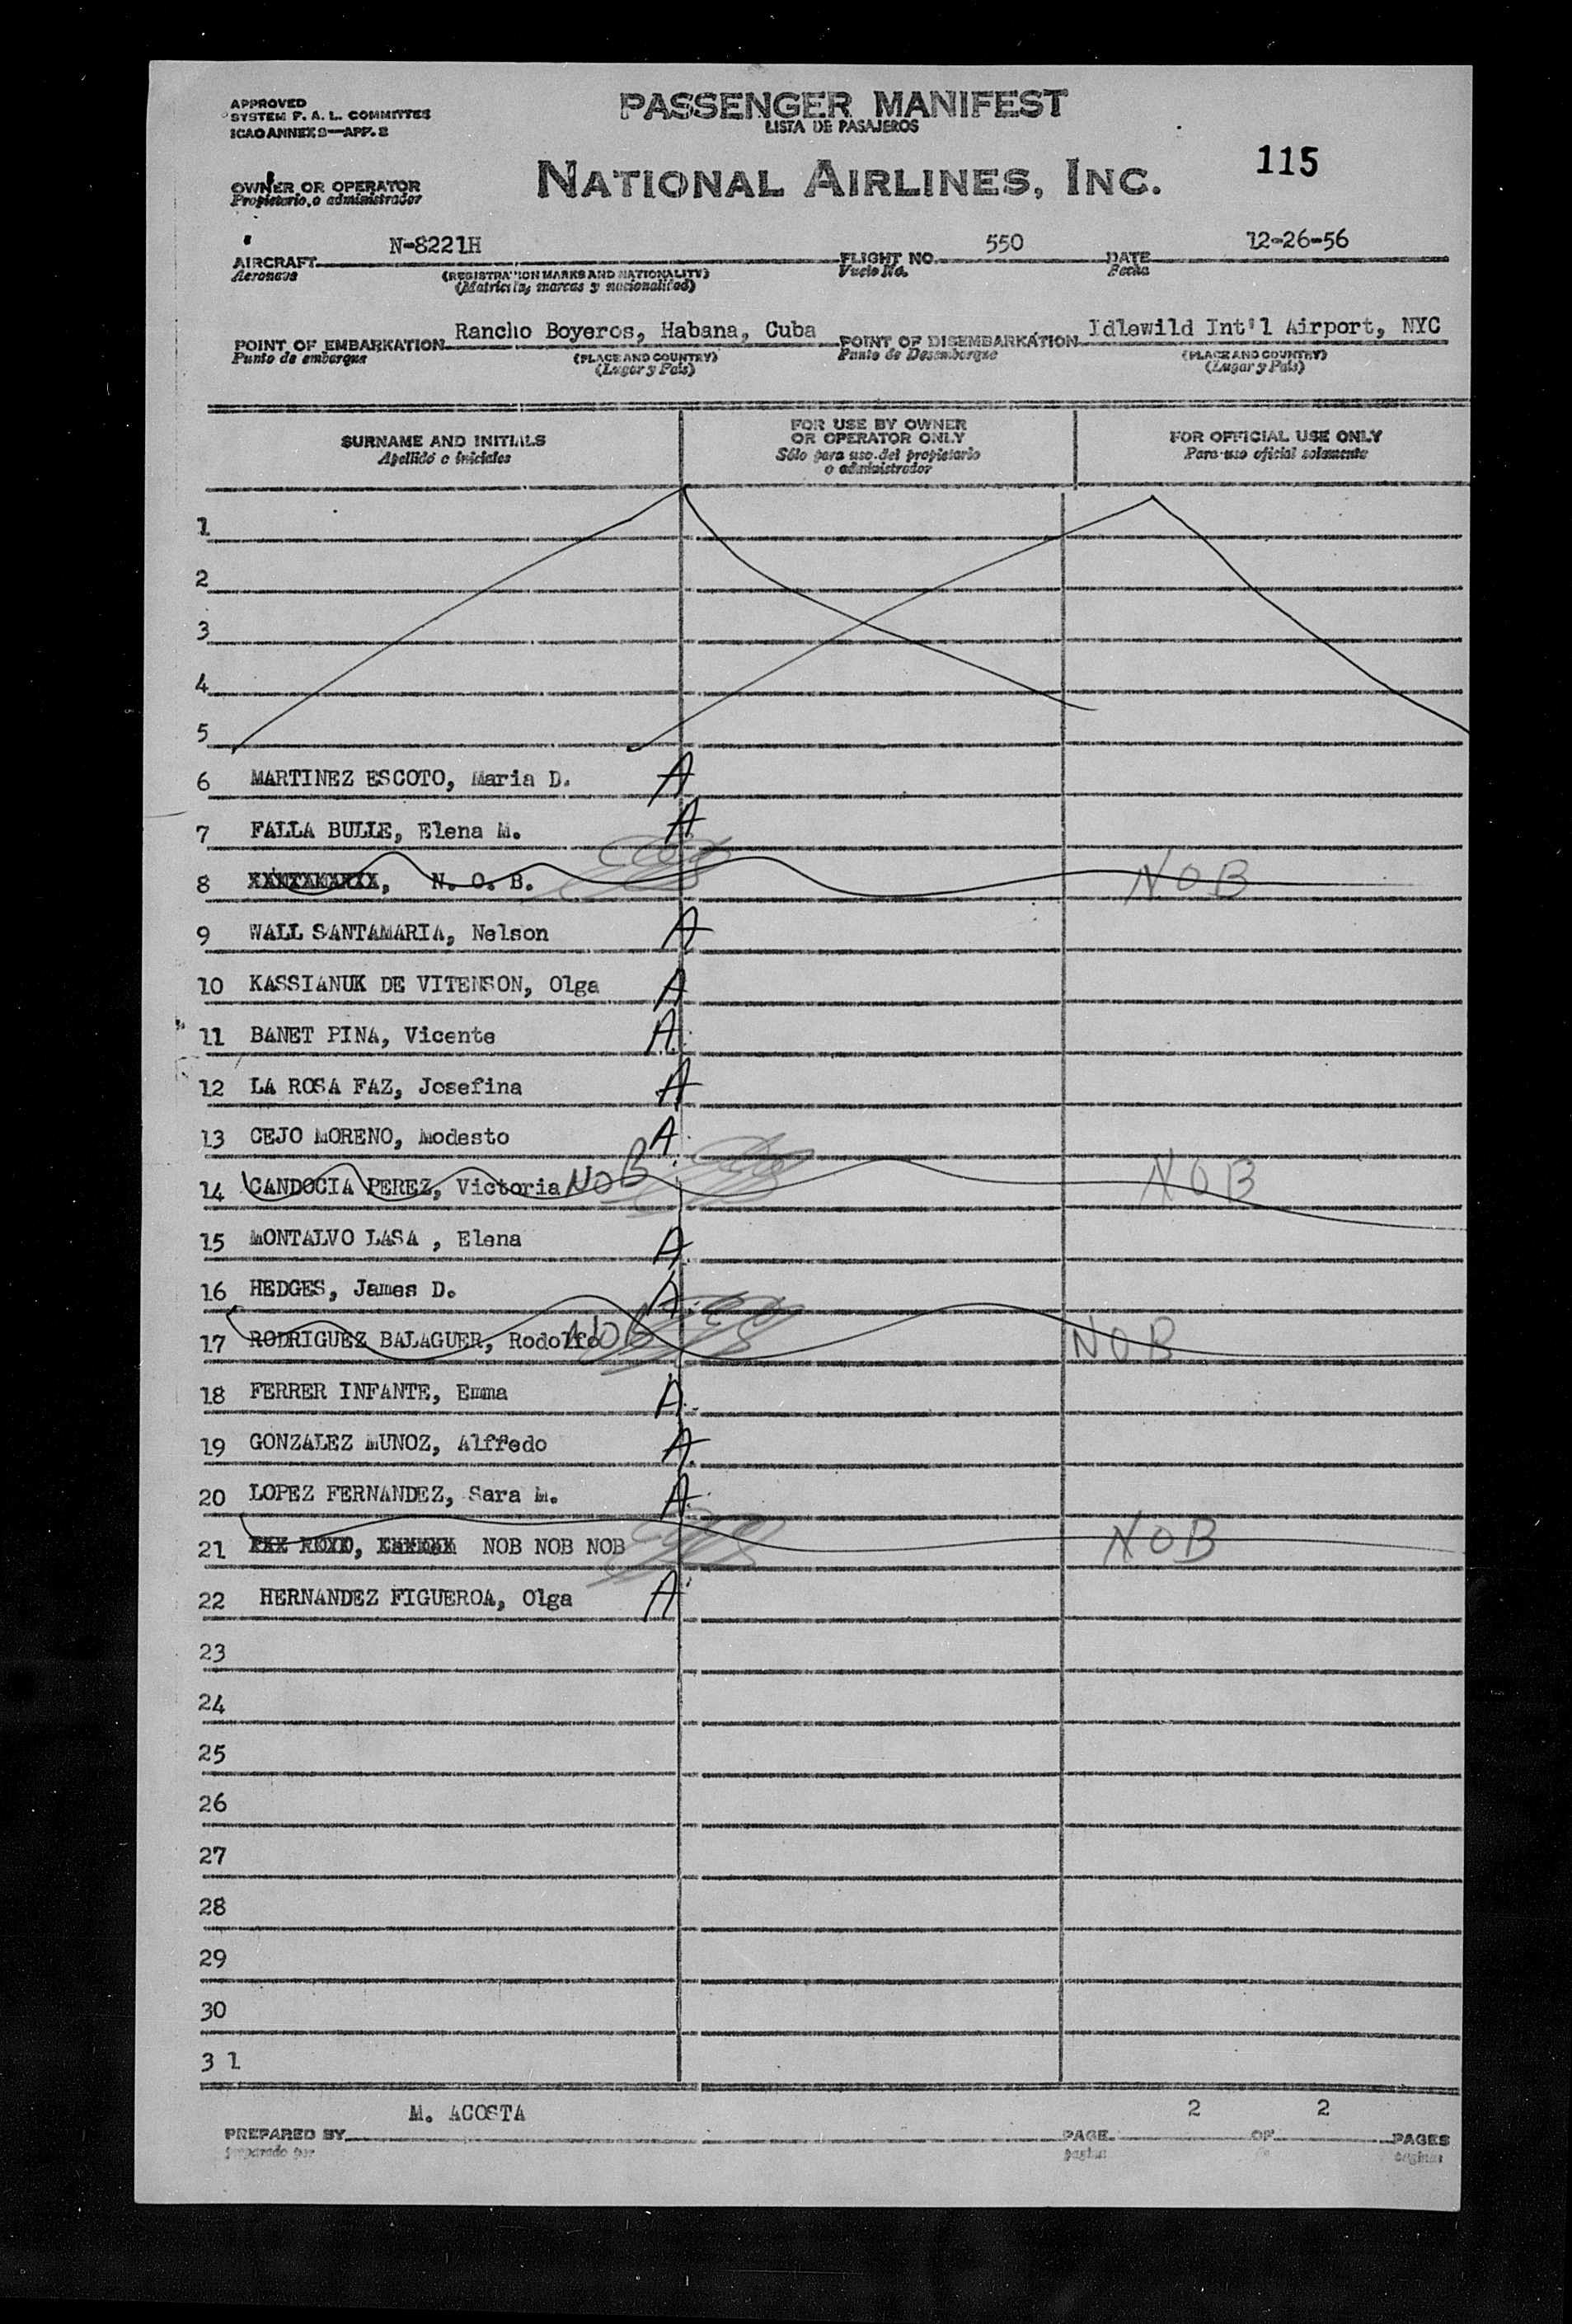 APPROVED
SYSTEM F. A. L. COMMITTEE
ICAO ANNEX 9—APP. 2
PASSENGER MANIFEST
LISTA DE PASAJEROS
115
OWNER OR OPERATOR
Propietario, o administrador
NATIONAL AIRLINES, INC.
AIRCRAFT N-8221H FLIGHT NO. 550 DATE 12-26-56
Aeronave (REGISTRATION MARKS AND NATIONALITY) Vuelo No. Fecha
(Matricula, marcas y nacionalidad)
POINT OF EMBARKATION Rancho Boyeros, Habana, Cuba POINT OF DISEMBARKATION Idlewild Int'l Airport, NYC
Punto de embarque (PLACE AND COUNTRY) Punto de Desembarque (PLACE AND COUNTRY)
(Lugar y País) (Lugar y País)
SURNAME AND INITIALS
Apellido e iniciales
FOR USE BY OWNER
OR OPERATOR ONLY
Sólo para uso del propietario
o administrador
FOR OFFICIAL USE ONLY
Para uso oficial solamente
1
2
3
4
5
6 MARTINEZ ESCOTO, Maria D. A
7 FALLA BULLE, Elena M. A
8 N. O. B. NOB
9 WALL SANTAMARIA, Nelson A
10 KASSIANUK DE VITENSON, Olga A
11 BANET PINA, Vicente A
12 LA ROSA FAZ, Josefina A
13 CEJO MORENO, Modesto A
14 CANDOCIA PEREZ, Victoria NOB NOB
15 MONTALVO LASA , Elena A
16 HEDGES, James D. A
17 RODRIGUEZ BALAGUER, Rodolfo NOB NOB
18 FERRER INFANTE, Emma A
19 GONZALEZ MUNOZ, Alffedo A
20 LOPEZ FERNANDEZ, Sara M. A
21 NOB NOB NOB NOB
22 HERNANDEZ FIGUEROA, Olga A
23
24
25
26
27
28
29
30
3 1
PREPARED BY M. ACOSTA PAGE 2 OF 2 PAGES
preparado por pagina de paginas